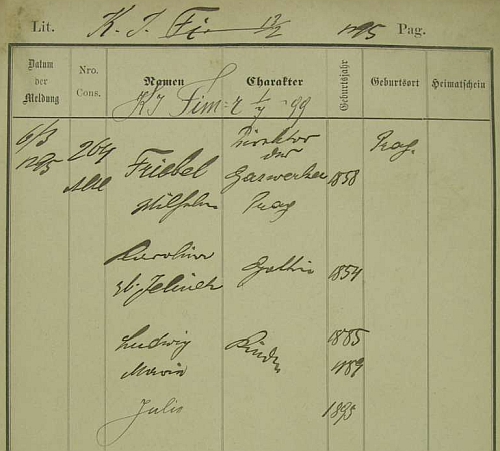 Lit. K. J. Fi 1895 Pag.
Datum der Meldung Nro. Cons. Namen Charakter Geburtsjahr Geburtsort Heimatschein
99
6/3 264 Direktor Prag.
1895 der
Friebel Gaswerke 1858
Wilhelm Prag
Karoline
gb. Jelinek Gattin 1854
Ludwig Kinder 1885
Marie 1889
Julie 1895